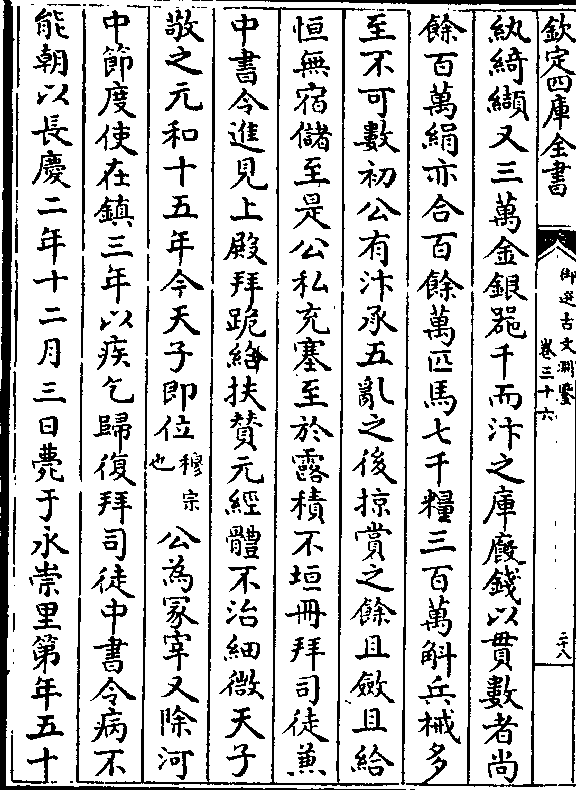 欽定四庫全書
御選古文淵鑒
卷三十六
二十八
紈綺纈又三萬金銀器千而汴之庫廐錢以貫數者尚
餘百萬絹亦合百餘萬匹馬七千糧三百萬斛兵械多
至不可數初公有汴承五亂之後掠賞之餘且斂且給
恒無宿儲至是公私充塞至於露積不垣冊拜司徒兼
中書令進見上殿拜跪給扶贊元經體不治細微天子
敬之元和十五年今天子即位穆宗也公為冢宰又除河
中節度使在鎮三年以疾乞歸復拜司徒中書令病不
能朝以長慶二年十二月三日薨于永崇里第年五十